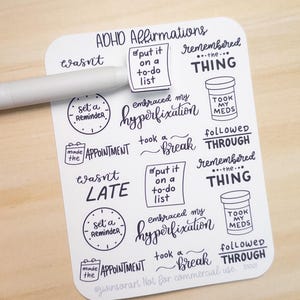 ADHD Affirmations
wasn't
put it
on a
to-do
list
remembered
the
THING
set a
Reminder
embraced my
hyperfixation
TOOK
MY
MEDS
made
the
APPOINTMENT
took a
Break
followed
THROUGH
wasn't
LATE
put it
on a
to-do
list
remembered
the
THING
set a
Reminder
embraced my
hyperfixation
TOOK
MY
MEDS
made
the
APPOINTMENT
took a
Break
followed
THROUGH
Not for commercial use